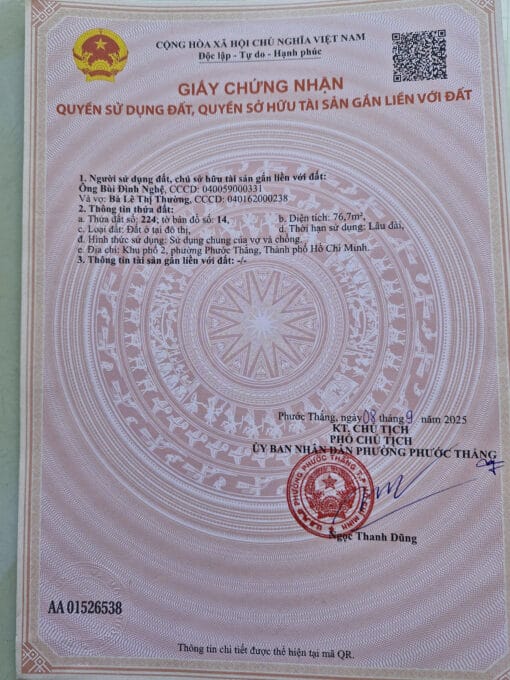 CỘNG HÒA XÃ HỘI CHỦ NGHĨA VIỆT NAM
Độc lập - Tự do - Hạnh phúc
GIẤY CHỨNG NHẬN
QUYỀN SỬ DỤNG ĐẤT, QUYỀN SỞ HỮU TÀI SẢN GẮN LIỀN VỚI ĐẤT
1. Người sử dụng đất, chủ sở hữu tài sản gắn liền với đất:
Ông Bùi Đình Nghệ, CCCD: 040059000331
Và vợ: Bà Lê Thị Thường, CCCD: 040162000238
2. Thông tin thửa đất:
a. Thửa đất số: 224; tờ bản đồ số: 14, b. Diện tích: 76,7m²,
c. Loại đất: Đất ở tại đô thị, d. Thời hạn sử dụng: Lâu dài,
đ. Hình thức sử dụng: Sử dụng chung của vợ và chồng.
e. Địa chỉ: Khu phố 2, phường Phước Thắng, Thành phố Hồ Chí Minh.
3. Thông tin tài sản gắn liền với đất: -/-
Phước Thắng, ngày 08 tháng 9 năm 2025
KT. CHỦ TỊCH
PHÓ CHỦ TỊCH
ỦY BAN NHÂN DÂN PHƯỜNG PHƯỚC THẮNG
U.B.N.D PHƯỜNG PHƯỚC THẮNG T.P HỒ CHÍ MINH
Ngọc Thanh Dũng
AA 01526538
Thông tin chi tiết được thể hiện tại mã QR.